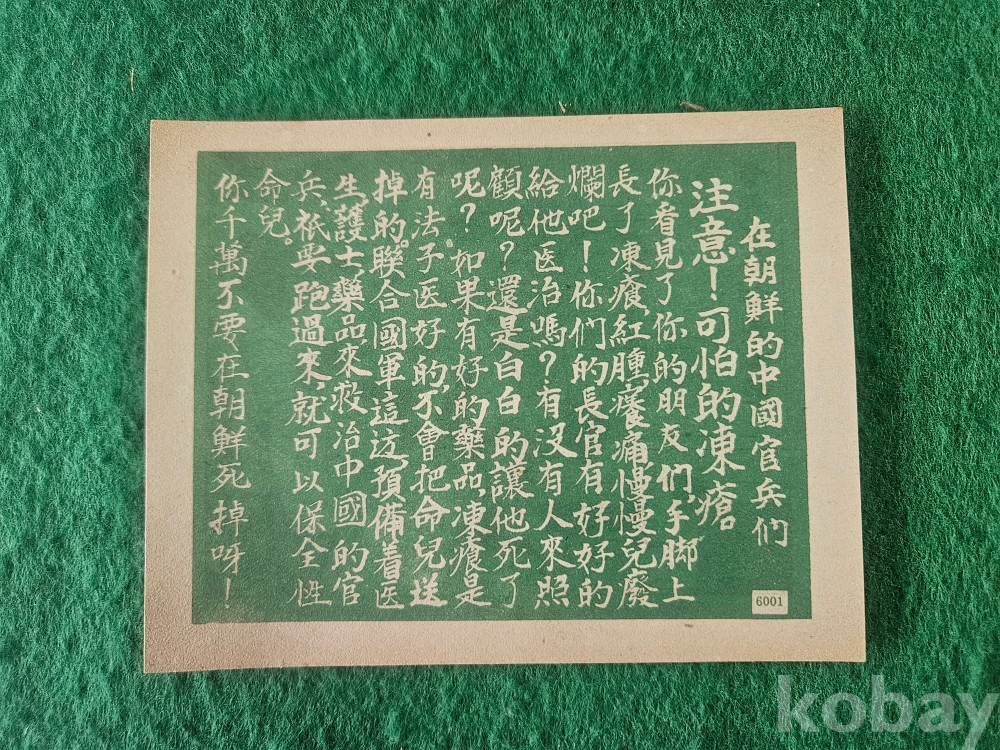 在朝鮮的中國官兵们
注意！可怕的凍瘡
你看見了你的朋友们,手脚上
長了凍瘡,紅腫癢痛,慢慢兒廢
爛吧！你們的長官有好好的
給他医治嗎？有沒有人來照
顧呢？還是白白的讓他死了
呢？如果有好的藥品,凍瘡是
有法子医好的,不會把命兒送
掉的。聯合國軍這边,預備着医
生,護士,藥品來救治中國的官
兵,祇要跑過來,就可以保全性
命兒。
你千萬不要在朝鮮死掉呀！
6001
kobay